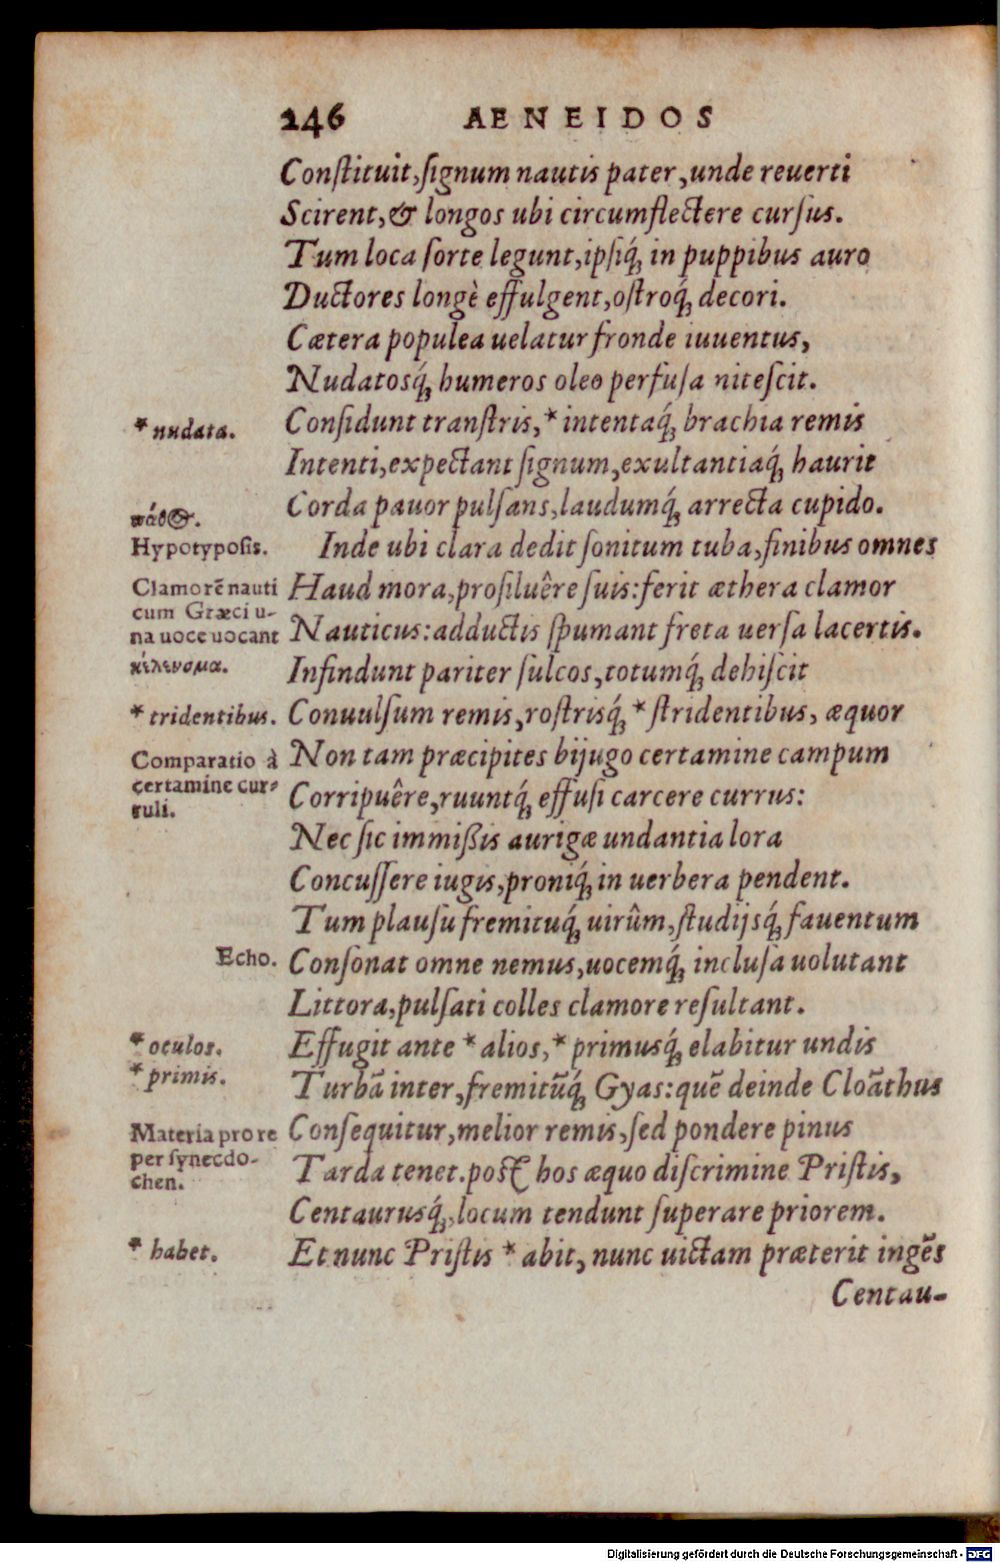 246 AENEIDOS
Constituit, signum nautis pater, unde reuerti
Scirent, & longos ubi circumflectere cursus.
Tum loca sorte legunt, ipsiq́; in puppibus auro
Ductores longè effulgent, ostroq́; decori.
Cætera populea uelatur fronde iuuentus,
Nudatosq́; humeros oleo perfusa nitescit.
Considunt transtris, * intentaq́; brachia remis
* nudata.
Intenti, expectant signum, exultantiaq́; haurit
Corda pauor pulsans, laudumq́; arrecta cupido.
πάθος.
Hypotyposis.
Inde ubi clara dedit sonitum tuba, finibus omnes
Haud mora, prosiluêre suis: ferit æthera clamor
Clamorẽ nauti
cum Græci u-
na uoce uocant
κέλευσμα.
Nauticus: adductis spumant freta uersa lacertis.
Infindunt pariter sulcos, totumq́; dehiscit
Conuulsum remis, rostrisq́; * stridentibus, æquor
* tridentibus.
Non tam præcipites bijugo certamine campum
Comparatio à
certamine cur-
ruli.
Corripuêre, ruuntq́; effusi carcere currus:
Nec sic immißis aurigæ undantia lora
Concussere iugis, proniq́; in uerbera pendent.
Tum plausu fremituq́; uirûm, studijsq́; fauentum
Echo.
Consonat omne nemus, uocemq́; inclusa uolutant
Littora, pulsati colles clamore resultant.
Effugit ante * alios, * primusq́; elabitur undis
* oculos.
* primis.
Turbã inter, fremitũq́; Gyas: quẽ deinde Cloãthus
Consequitur, melior remis, sed pondere pinus
Materia pro re
per synecdo-
chen.
Tarda tenet. post hos æquo discrimine Pristis,
Centaurusq́;, locum tendunt superare priorem.
Et nunc Pristis * abit, nunc uictam præterit ingẽs
* habet.
Centau-
Digitalisierung gefördert durch die Deutsche Forschungsgemeinschaft - DFG